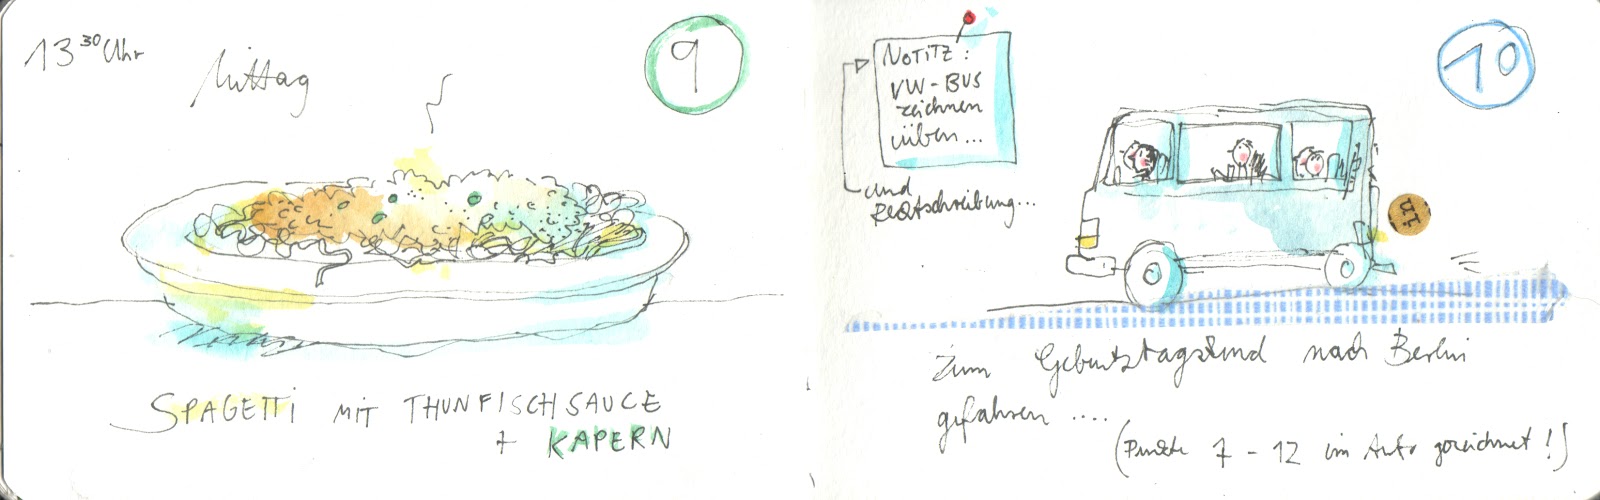 13 30 Uhr
Mittag
9
SPAGETTI MIT THUNFISCHSAUCE
+ KAPERN
10
NOTITZ:
VW-BUS
zeichnen
üben...
und
Rechtschreibung...
Zum Geburtstagskind nach Berlin
gefahren ....
(Punkte 7 - 12 im Auto gezeichnet!)